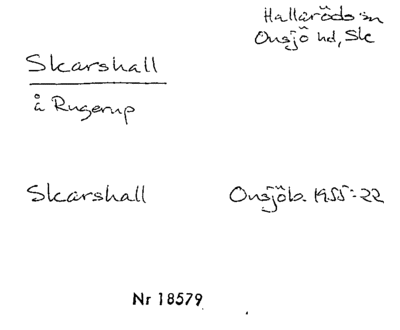 Hallaröds sn
Onsjö hd, Sk
Skarshall
å Rugerup
Skarshall Onsjöb. 1955:22
Nr 18579